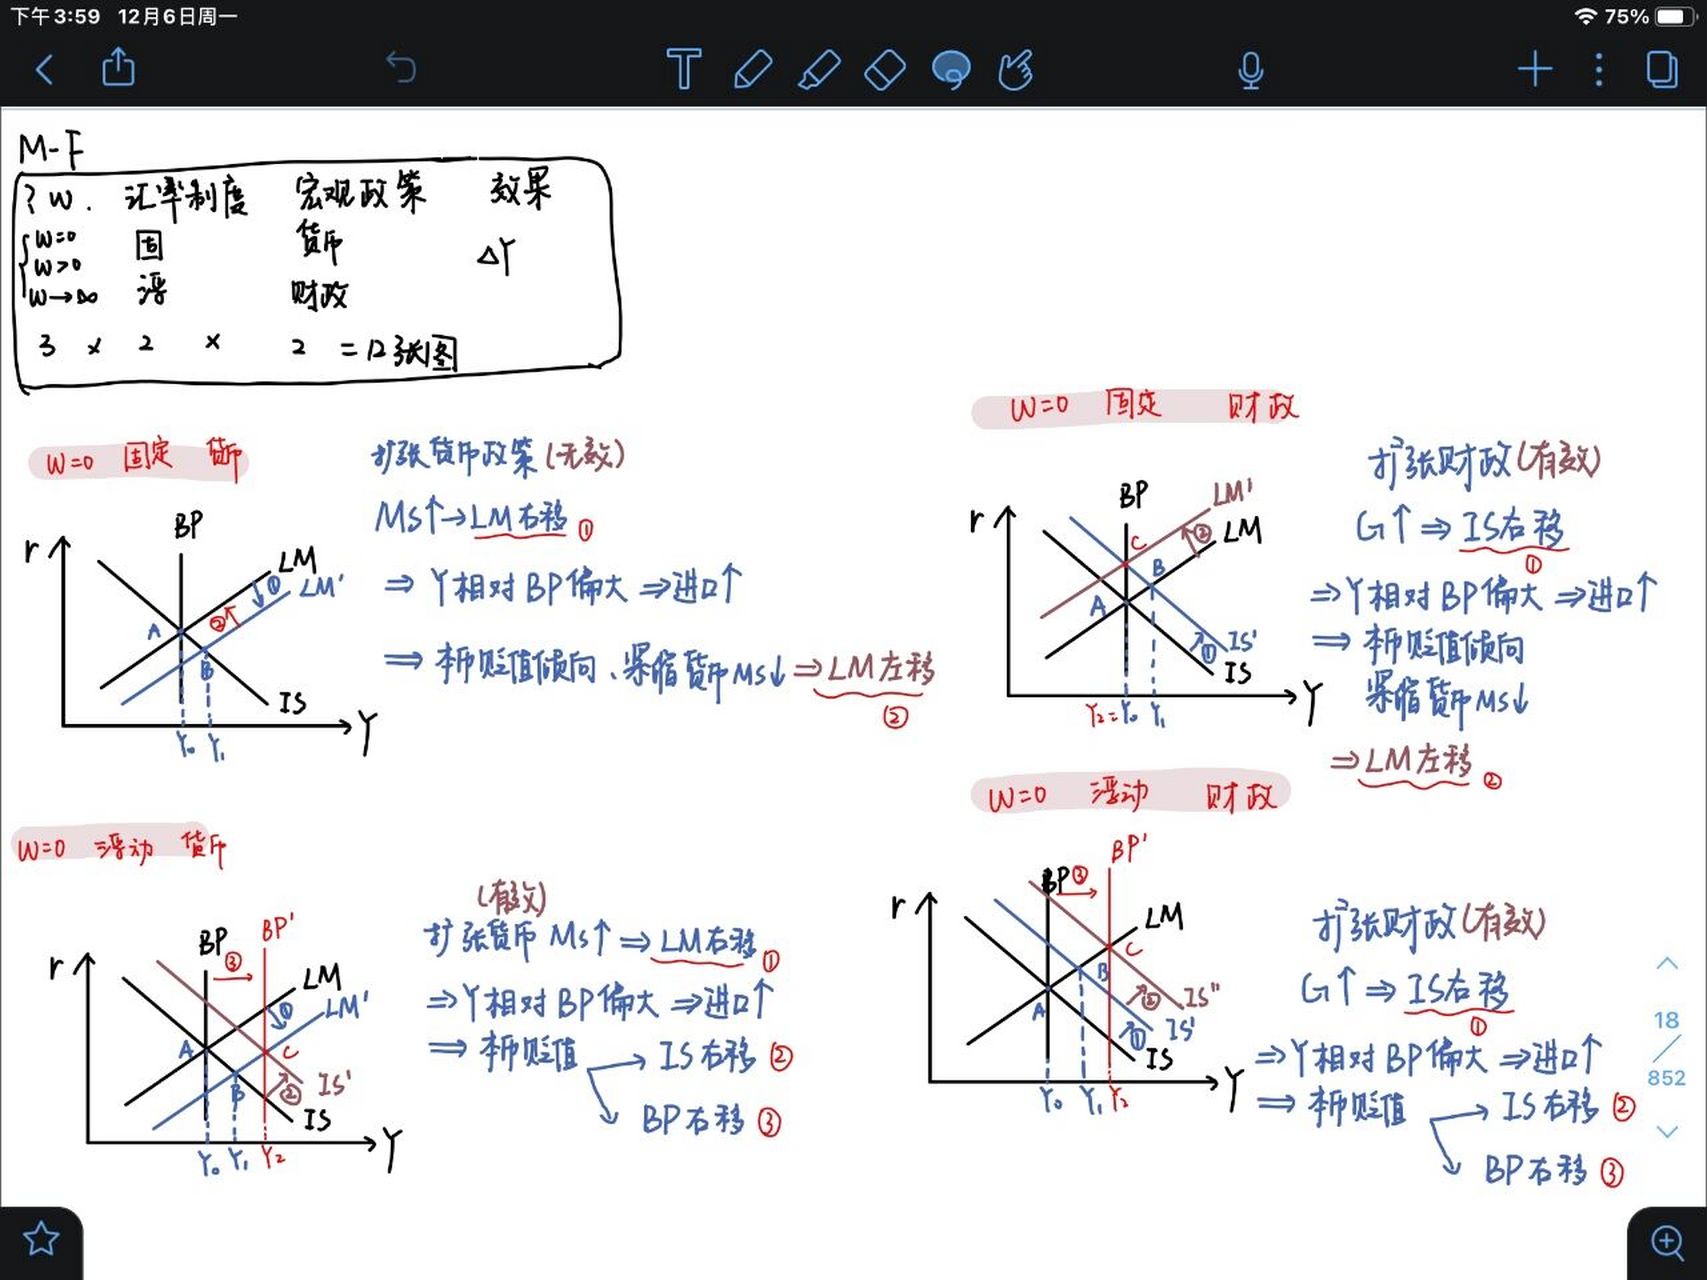 下午3:59 12月6日周一
75%
M-F
? w. 汇率制度 宏观政策 效果
w=0 固 货币 ΔY
w>0
w→∞ 浮 财政
3 × 2 × 2 =12张图
w=0 固定 货币
扩张货币政策(无效)
Ms↑→LM右移 ①
⇒ Y相对BP偏大 ⇒进口↑
⇒ 本币贬值倾向、紧缩货币Ms↓ ⇒LM左移
②
r
BP
LM
①
LM'
②
A
B
IS
Y
Y₀ Y₁
w=0 固定 财政
扩张财政(有效)
G↑ ⇒ IS右移
①
⇒Y相对BP偏大 ⇒进口↑
⇒ 本币贬值倾向
紧缩货币Ms↓
⇒LM左移 ②
r
BP
LM'
②
LM
C
B
A
IS'
①
IS
Y
Y₂=Y₀ Y₁
w=0 浮动 货币
(有效)
扩张货币 Ms↑ ⇒ LM右移 ①
⇒Y相对BP偏大 ⇒进口↑
⇒ 本币贬值 → IS右移 ②
BP右移 ③
r
BP
③
BP'
LM
①
LM'
A
C
B
IS'
②
IS
Y
Y₀ Y₁ Y₂
w=0 浮动 财政
扩张财政(有效)
G↑ ⇒ IS右移
①
⇒Y相对BP偏大 ⇒进口↑
⇒ 本币贬值 → IS右移 ②
BP右移 ③
r
BP
③
BP'
LM
C
B
A
②
IS''
①
IS'
IS
Y
Y₀ Y₁ Y₂
18
852